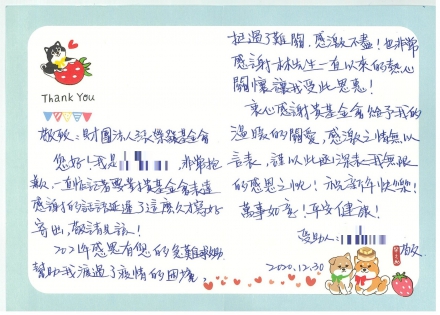 Thank You
敬啟：財團法人張榮發基金會
您好！我是　　，非常抱
歉，一直惦記著要幫貴基金會表達
感謝的話語延遲了這麼久才寫好
寄出，敬請見諒！
2021年感恩有您的急難救助
幫助我渡過了疫情的困境，
把過了難關，感激不盡！也非常
感謝林　生一直以來的熱心
關懷讓我受此恩惠！
衷心感謝貴基金會給予我的
溫暖的關愛，感激之情無以
言表，謹以此函深表我無限
的感恩之忱！祝新年快樂！
萬事如意！平安健康！
受助人：　　敬上
2020.12.30